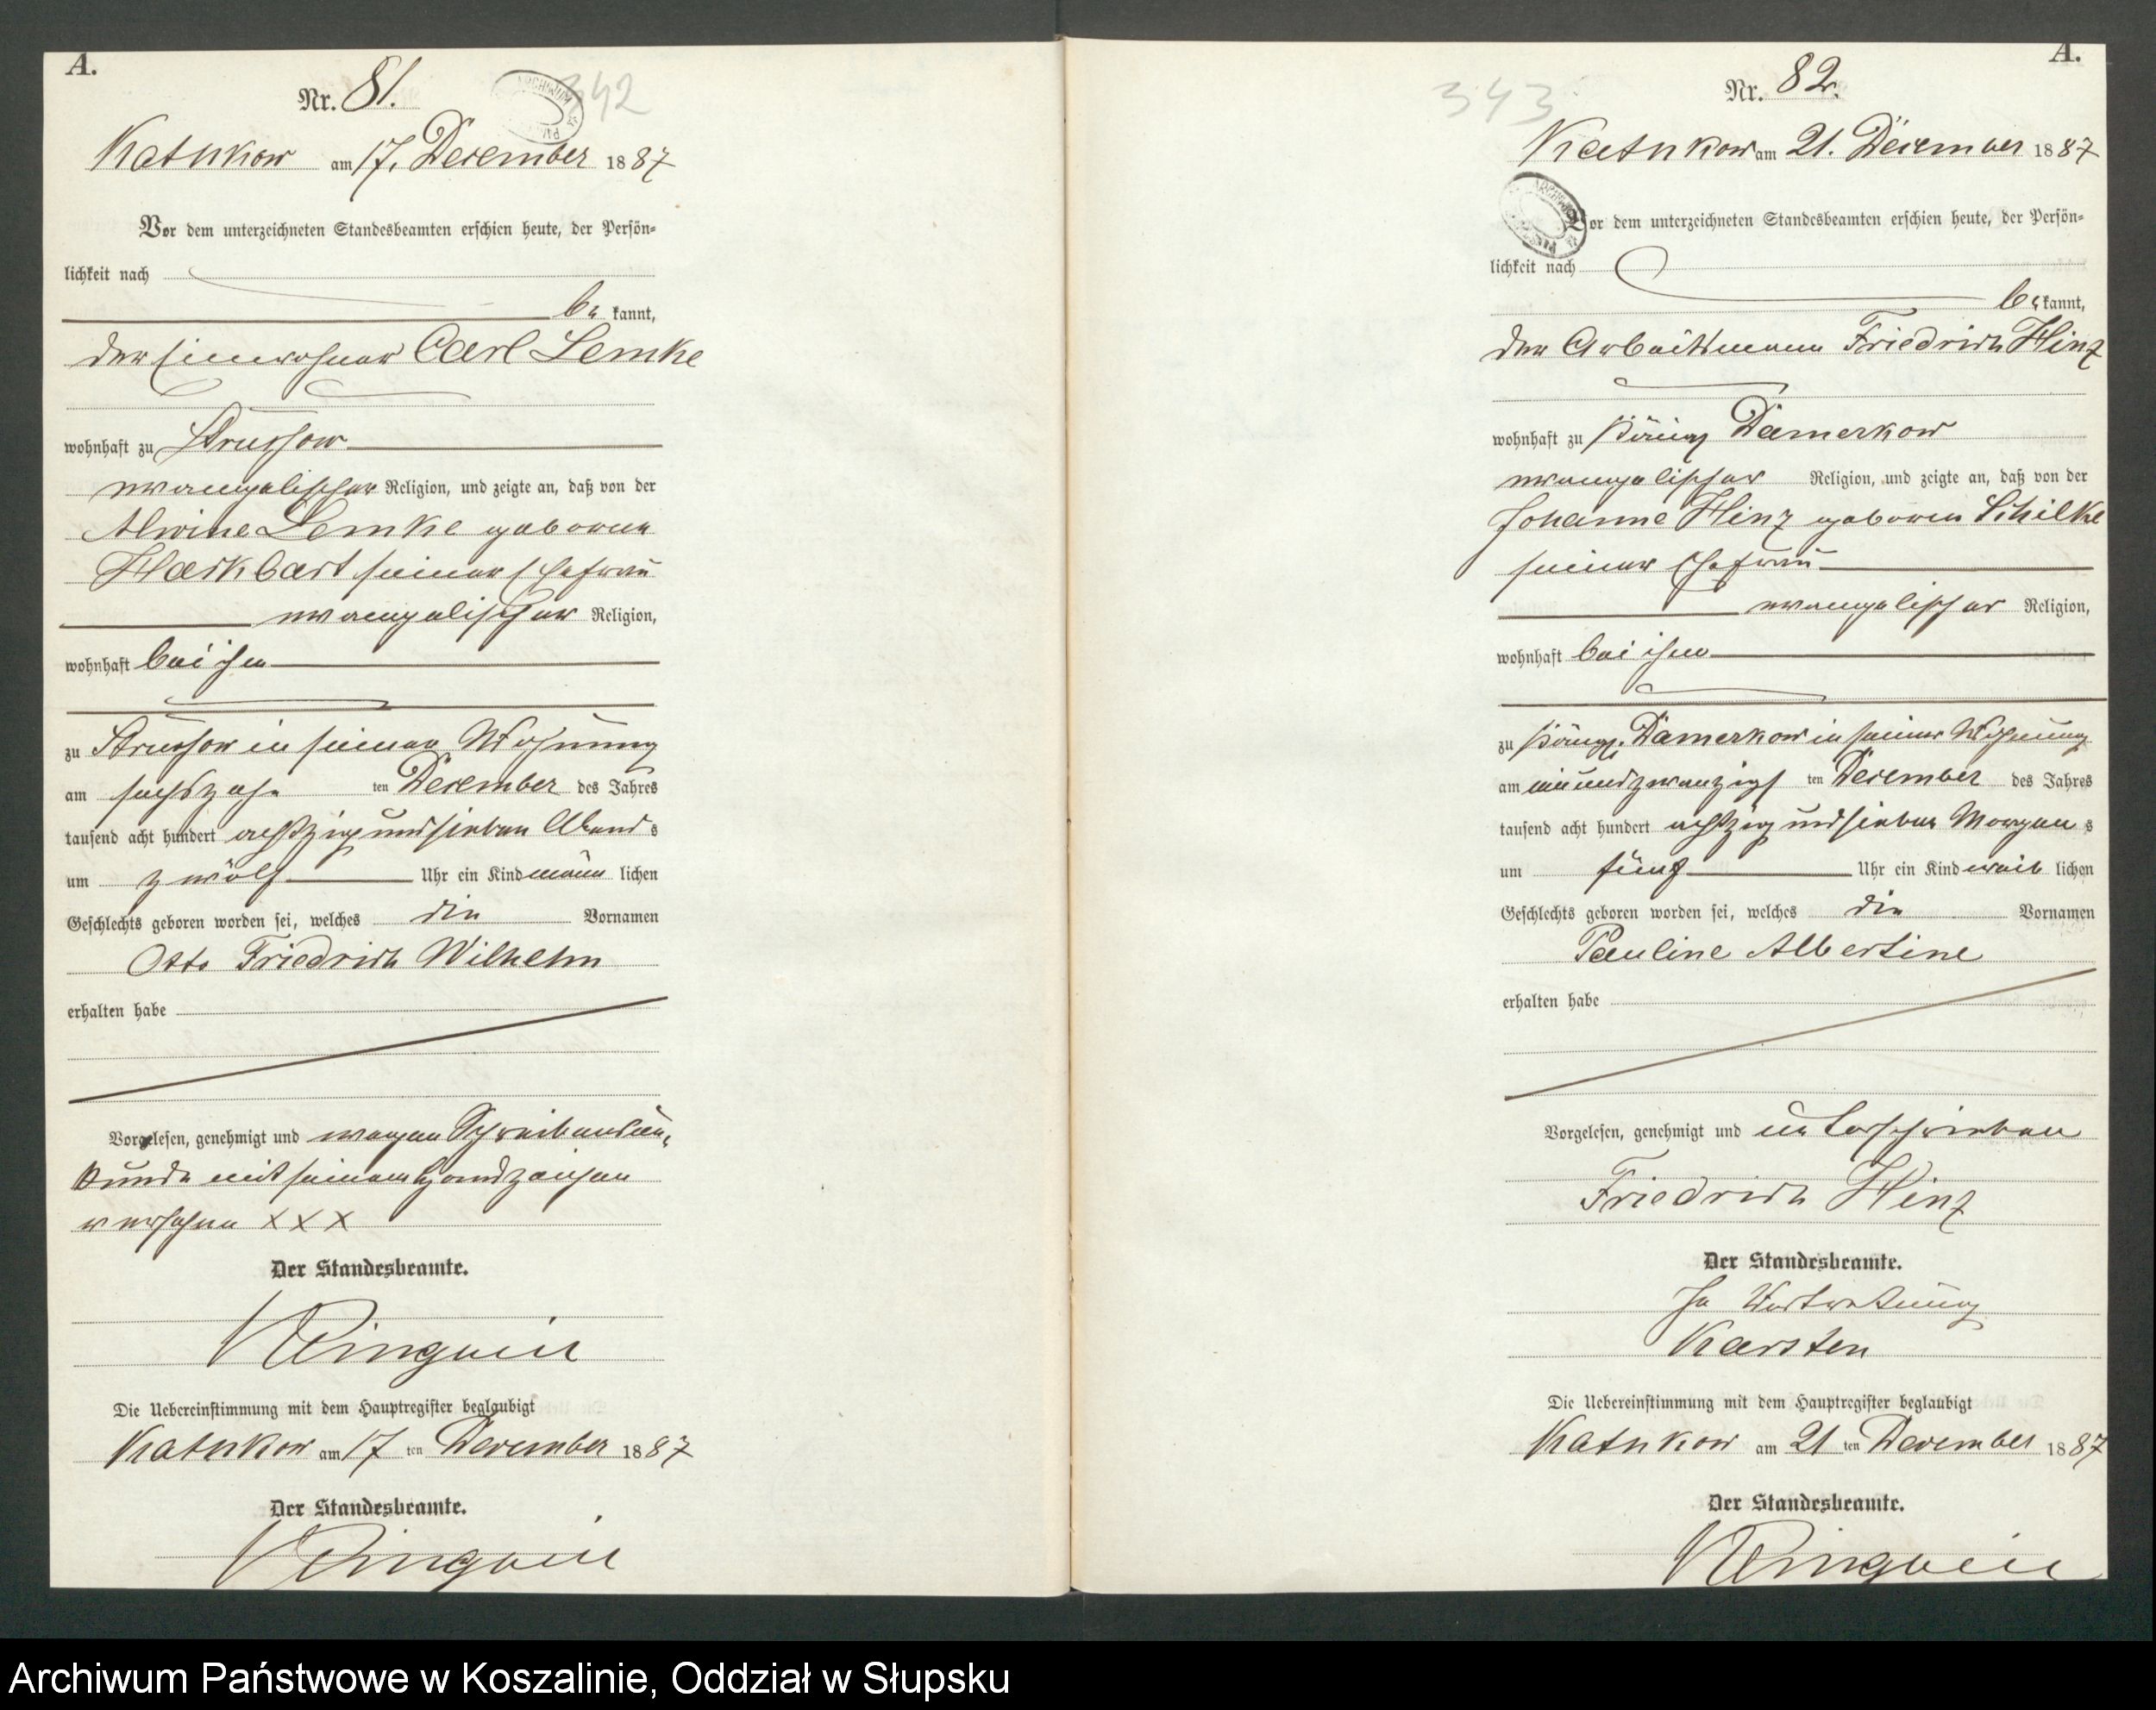 A.
Nr. 81.
342
Katnkow am 17. December 1887
Vor dem unterzeichneten Standesbeamten erschien heute, der Persön=
lichkeit nach
be kannt,
der Einwohner Carl Lemke
wohnhaft zu Strussow
evangelischer Religion, und zeigte an, daß von der
Alwine Lemke geborene
Harkbart seiner Ehefrau
evangelischer Religion,
wohnhaft bei ihm
zu Strussow in seiner Wohnung
am sechszehn ten December des Jahres
tausend acht hundert achtzig und sieben Abend s
um zwölf Uhr ein Kind männ lichen
Geschlechts geboren worden sei, welches die Vornamen
Otto Friedrich Wilhelm
erhalten habe
Vorgelesen, genehmigt und wegen Schreibensun=
kunde mit seinem Handzeichen
versehen X X X
Der Standesbeamte.
Die Uebereinstimmung mit dem Hauptregister beglaubigt
Katnkow am 17 ten December 1887
Der Standesbeamte.
A.
Nr. 82.
343
Katnkow am 21. December 1887
Vor dem unterzeichneten Standesbeamten erschien heute, der Persön=
lichkeit nach
be kannt,
der Arbeitsmann Friedrich Hinz
wohnhaft zu Königl Damerkow
evangelischer Religion, und zeigte an, daß von der
Johanne Hinz geboren Schilke
seiner Ehefrau
evangelischer Religion,
wohnhaft bei ihm
zu Königl. Damerkow in seiner Wohnung
am einundzwanzigs ten December des Jahres
tausend acht hundert achtzig und sieben Morgen s
um fünf Uhr ein Kind weib lichen
Geschlechts geboren worden sei, welches die Vornamen
Pauline Albertine
erhalten habe
Vorgelesen, genehmigt und unterschrieben
Friedrich Hinz
Der Standesbeamte.
In Vertretung
Karsten
Die Uebereinstimmung mit dem Hauptregister beglaubigt
Katnkow am 21 ten December 1887
Der Standesbeamte.
Archiwum Państwowe w Koszalinie, Oddział w Słupsku